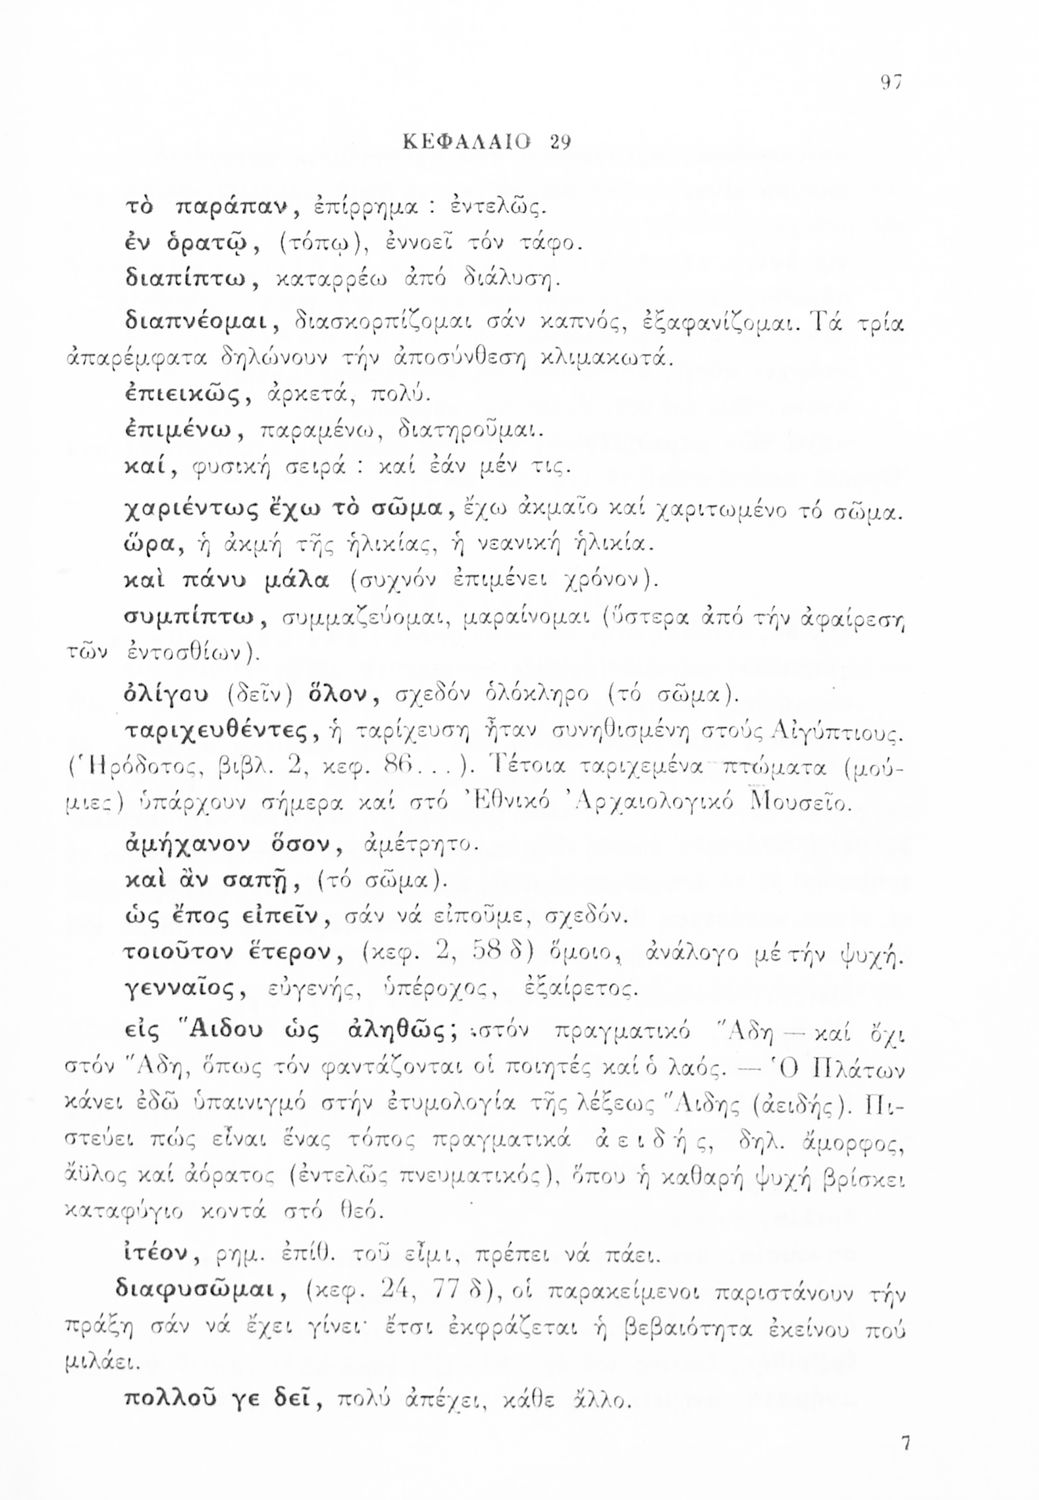 97
ΚΕΦΑΛΑΙΟ 29
τὸ παράπαν, ἐπίρρημα : ἐντελῶς.
ἐν ὁρατῷ, (τόπῳ), ἐννοεῖ τόν τάφο.
διαπίπτω, καταρρέω ἀπό διάλυση.
διαπνέομαι, διασκορπίζομαι σάν καπνός, ἐξαφανίζομαι. Τά τρία
ἀπαρέμφατα δηλώνουν τήν ἀποσύνθεση κλιμακωτά.
ἐπιεικῶς, ἀρκετά, πολύ.
ἐπιμένω, παραμένω, διατηροῦμαι.
καί, φυσική σειρά : καί ἐάν μέν τις.
χαριέντως ἔχω τὸ σῶμα, ἔχω ἀκμαῖο καί χαριτωμένο τό σῶμα.
ὥρα, ἡ ἀκμή τῆς ἡλικίας, ἡ νεανική ἡλικία.
καὶ πάνυ μάλα (συχνόν ἐπιμένει χρόνον).
συμπίπτω, συμμαζεύομαι, μαραίνομαι (ὕστερα ἀπό τήν ἀφαίρεση
τῶν ἐντοσθίων).
ὀλίγου (δεῖν) ὅλον, σχεδόν ὁλόκληρο (τό σῶμα).
ταριχευθέντες, ἡ ταρίχευση ἦταν συνηθισμένη στούς Αἰγύπτιους.
(Ἡρόδοτος, βιβλ. 2, κεφ. 86...). Τέτοια ταριχεμένα πτώματα (μού-
μιες) ὑπάρχουν σήμερα καί στό Ἐθνικό Ἀρχαιολογικό Μουσεῖο.
ἀμήχανον ὅσον, ἀμέτρητο.
καὶ ἂν σαπῇ, (τό σῶμα).
ὡς ἔπος εἰπεῖν, σάν νά εἰποῦμε, σχεδόν.
τοιοῦτον ἕτερον, (κεφ. 2, 58 δ) ὅμοιο, ἀνάλογο μέ τήν ψυχή.
γενναῖος, εὐγενής, ὑπέροχος, ἐξαίρετος.
εἰς Ἅιδου ὡς ἀληθῶς; στόν πραγματικό Ἅδη — καί ὄχι
στόν Ἅδη, ὅπως τόν φαντάζονται οἱ ποιητές καί ὁ λαός. — Ὁ Πλάτων
κάνει ἐδῶ ὑπαινιγμό στήν ἐτυμολογία τῆς λέξεως Ἅιδης (ἀειδής). Πι-
στεύει πώς εἶναι ἕνας τόπος πραγματικά ἀ ε ι δ ή ς, δηλ. ἄμορφος,
ἄϋλος καί ἀόρατος (ἐντελῶς πνευματικός), ὅπου ἡ καθαρή ψυχή βρίσκει
καταφύγιο κοντά στό θεό.
ἰτέον, ρημ. ἐπίθ. τοῦ εἶμι, πρέπει νά πάει.
διαφυσῶμαι, (κεφ. 24, 77 δ), οἱ παρακείμενοι παριστάνουν τήν
πράξη σάν νά ἔχει γίνει· ἔτσι ἐκφράζεται ἡ βεβαιότητα ἐκείνου πού
μιλάει.
πολλοῦ γε δεῖ, πολύ ἀπέχει, κάθε ἄλλο.
7